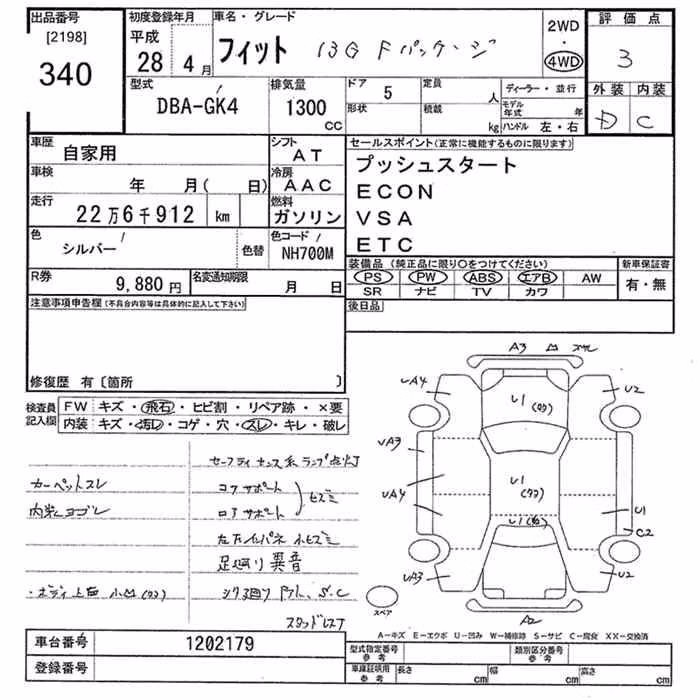 出品番号
[2198]
340
初度登録年月
平成
28年 4月
車名・グレード
フィット 13G Fパッケージ
2WD
・
4WD
評価点
3
外装 内装
D C
型式
DBA-GK4
排気量
1300
CC
ドア 5
形状
定員 人
積載 kg
ディーラー・並行
モデル年式 年
ハンドル 左・右
車歴
自家用
シフト
AT
車検
年 月( 日)
冷房
AAC
走行
22万6千912 km
燃料
ガソリン
色
シルバー
色替
色コード
NH700M
R券
9,880円
名変通知期限
月 日
セールスポイント(正常に機能するものに限ります)
プッシュスタート
ECON
VSA
ETC
装備品(純正品に限り○をつけてください)
PS PW ABS エアB AW
SR ナビ TV カワ
新車保証書
有・無
後日品
注意事項申告欄(不具合内容等は具体的に記入して下さい)
修復歴 有〔箇所 〕
検査員記入欄
FW キズ・飛石・ヒビ割・リペア跡・×要
内装 キズ・汚レ・コゲ・穴・スレ・キレ・破レ
セーフティセンス系ランプ点灯
カーペットスレ
コアサポート
内装ヨゴレ
ロアサポート
足廻り異音
スタッドレス
A3
UA4
U1
U2
UA3
U1
UA4
U1
U1
C2
UA3
U2
A2
スペア
A-キズ E-エクボ U-凹み W-補修跡 S-サビ C-腐食 XX-交換済
車台番号 1202179
登録番号
型式指定番号 参考
類別区分番号 参考
車庫証明用 参考
長さ cm
幅 cm
高さ cm